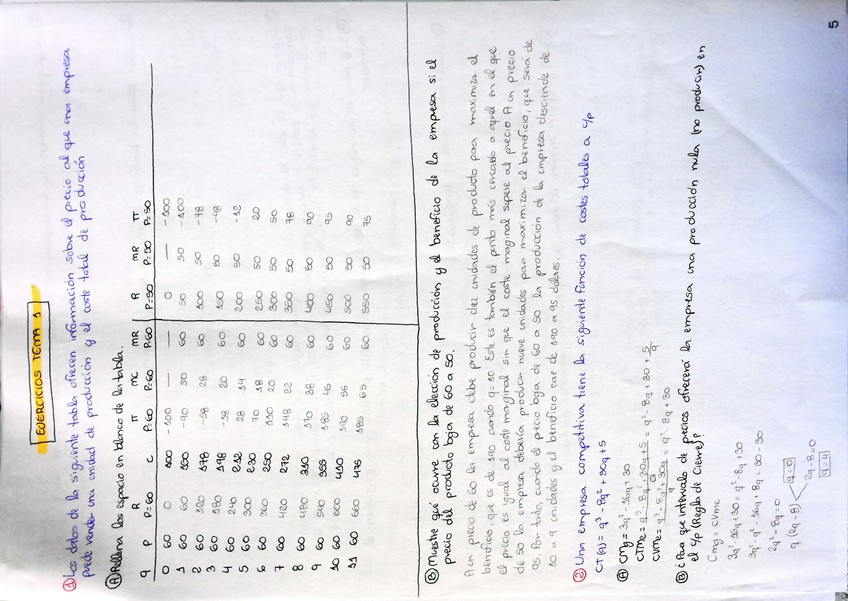 EJERCICIOS TEMA 1
① Los datos de la siguiente tabla ofrecen información sobre el precio al que una empresa
puede vender una unidad de producción y el coste total de producción
Ⓐ Rellena los espacio en blanco de la tabla.
q P R P=60 C π P=60 MC P=60 MR P=60 R P=50 MR P=50 π P=50
0 60 0 100 -100 — — 0 — -100
1 60 60 150 -90 50 60 50 50 -100
2 60 120 178 -58 28 60 100 50 -78
3 60 180 198 -18 20 60 150 50 -48
4 60 240 212 28 14 60 200 50 -12
5 60 300 230 70 18 60 250 50 20
6 60 360 250 110 20 60 300 50 50
7 60 420 272 148 22 60 350 50 78
8 60 480 310 170 38 60 400 50 90
9 60 540 355 185 45 60 450 50 95
10 60 600 410 190 56 60 500 50 90
11 60 660 475 185 65 60 550 50 75
Ⓑ Muestre qué ocurre con la elección de producción y el beneficio de la empresa si el
precio del producto baja de 60 a 50.
A un precio de 60 la empresa debe producir diez unidades de producto para maximizar el
beneficio, que es de 190 cuando q=10 Este es también el punto más cercano a aquel en el que
el precio es igual al coste marginal sin que el coste marginal supere al precio A un precio
de 50 la empresa debería producir nueve unidades para maximizar el beneficio, que será de
95. Por tanto, cuando el precio baja de 60 a 50 la producción de la empresa desciende de
10 a 9 unidades y el beneficio cae de 190 a 95 dólares.
② Una empresa competitiva tiene la siguiente función de costes totales a c/p
CT(q) = q³ - 8q² + 30q + 5
Ⓐ CMg = 3q² - 16q + 30
CTMe = q³ - 8q² + 30q + 5 / q = q² - 8q + 30 + 5/q
CVMe = q³ - 8q² + 30q / q = q² - 8q + 30
Ⓑ ¿Para que intervalo de precios ofrecerá la empresa una producción nula (no producir) en
el c/p (Regla de Cierre)?
Cmg = CVMe
3q² - 16q + 30 = q² - 8q + 30
3q² - q² - 16q + 8q = 30 - 30
2q² - 8q = 0
q (2q - 8) q = 0
2q - 8 = 0
q = 4
5